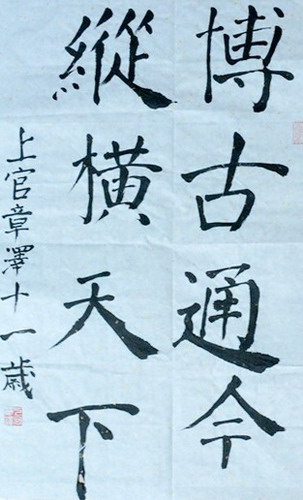 博古通今
縱橫天下
上官章澤十一歲